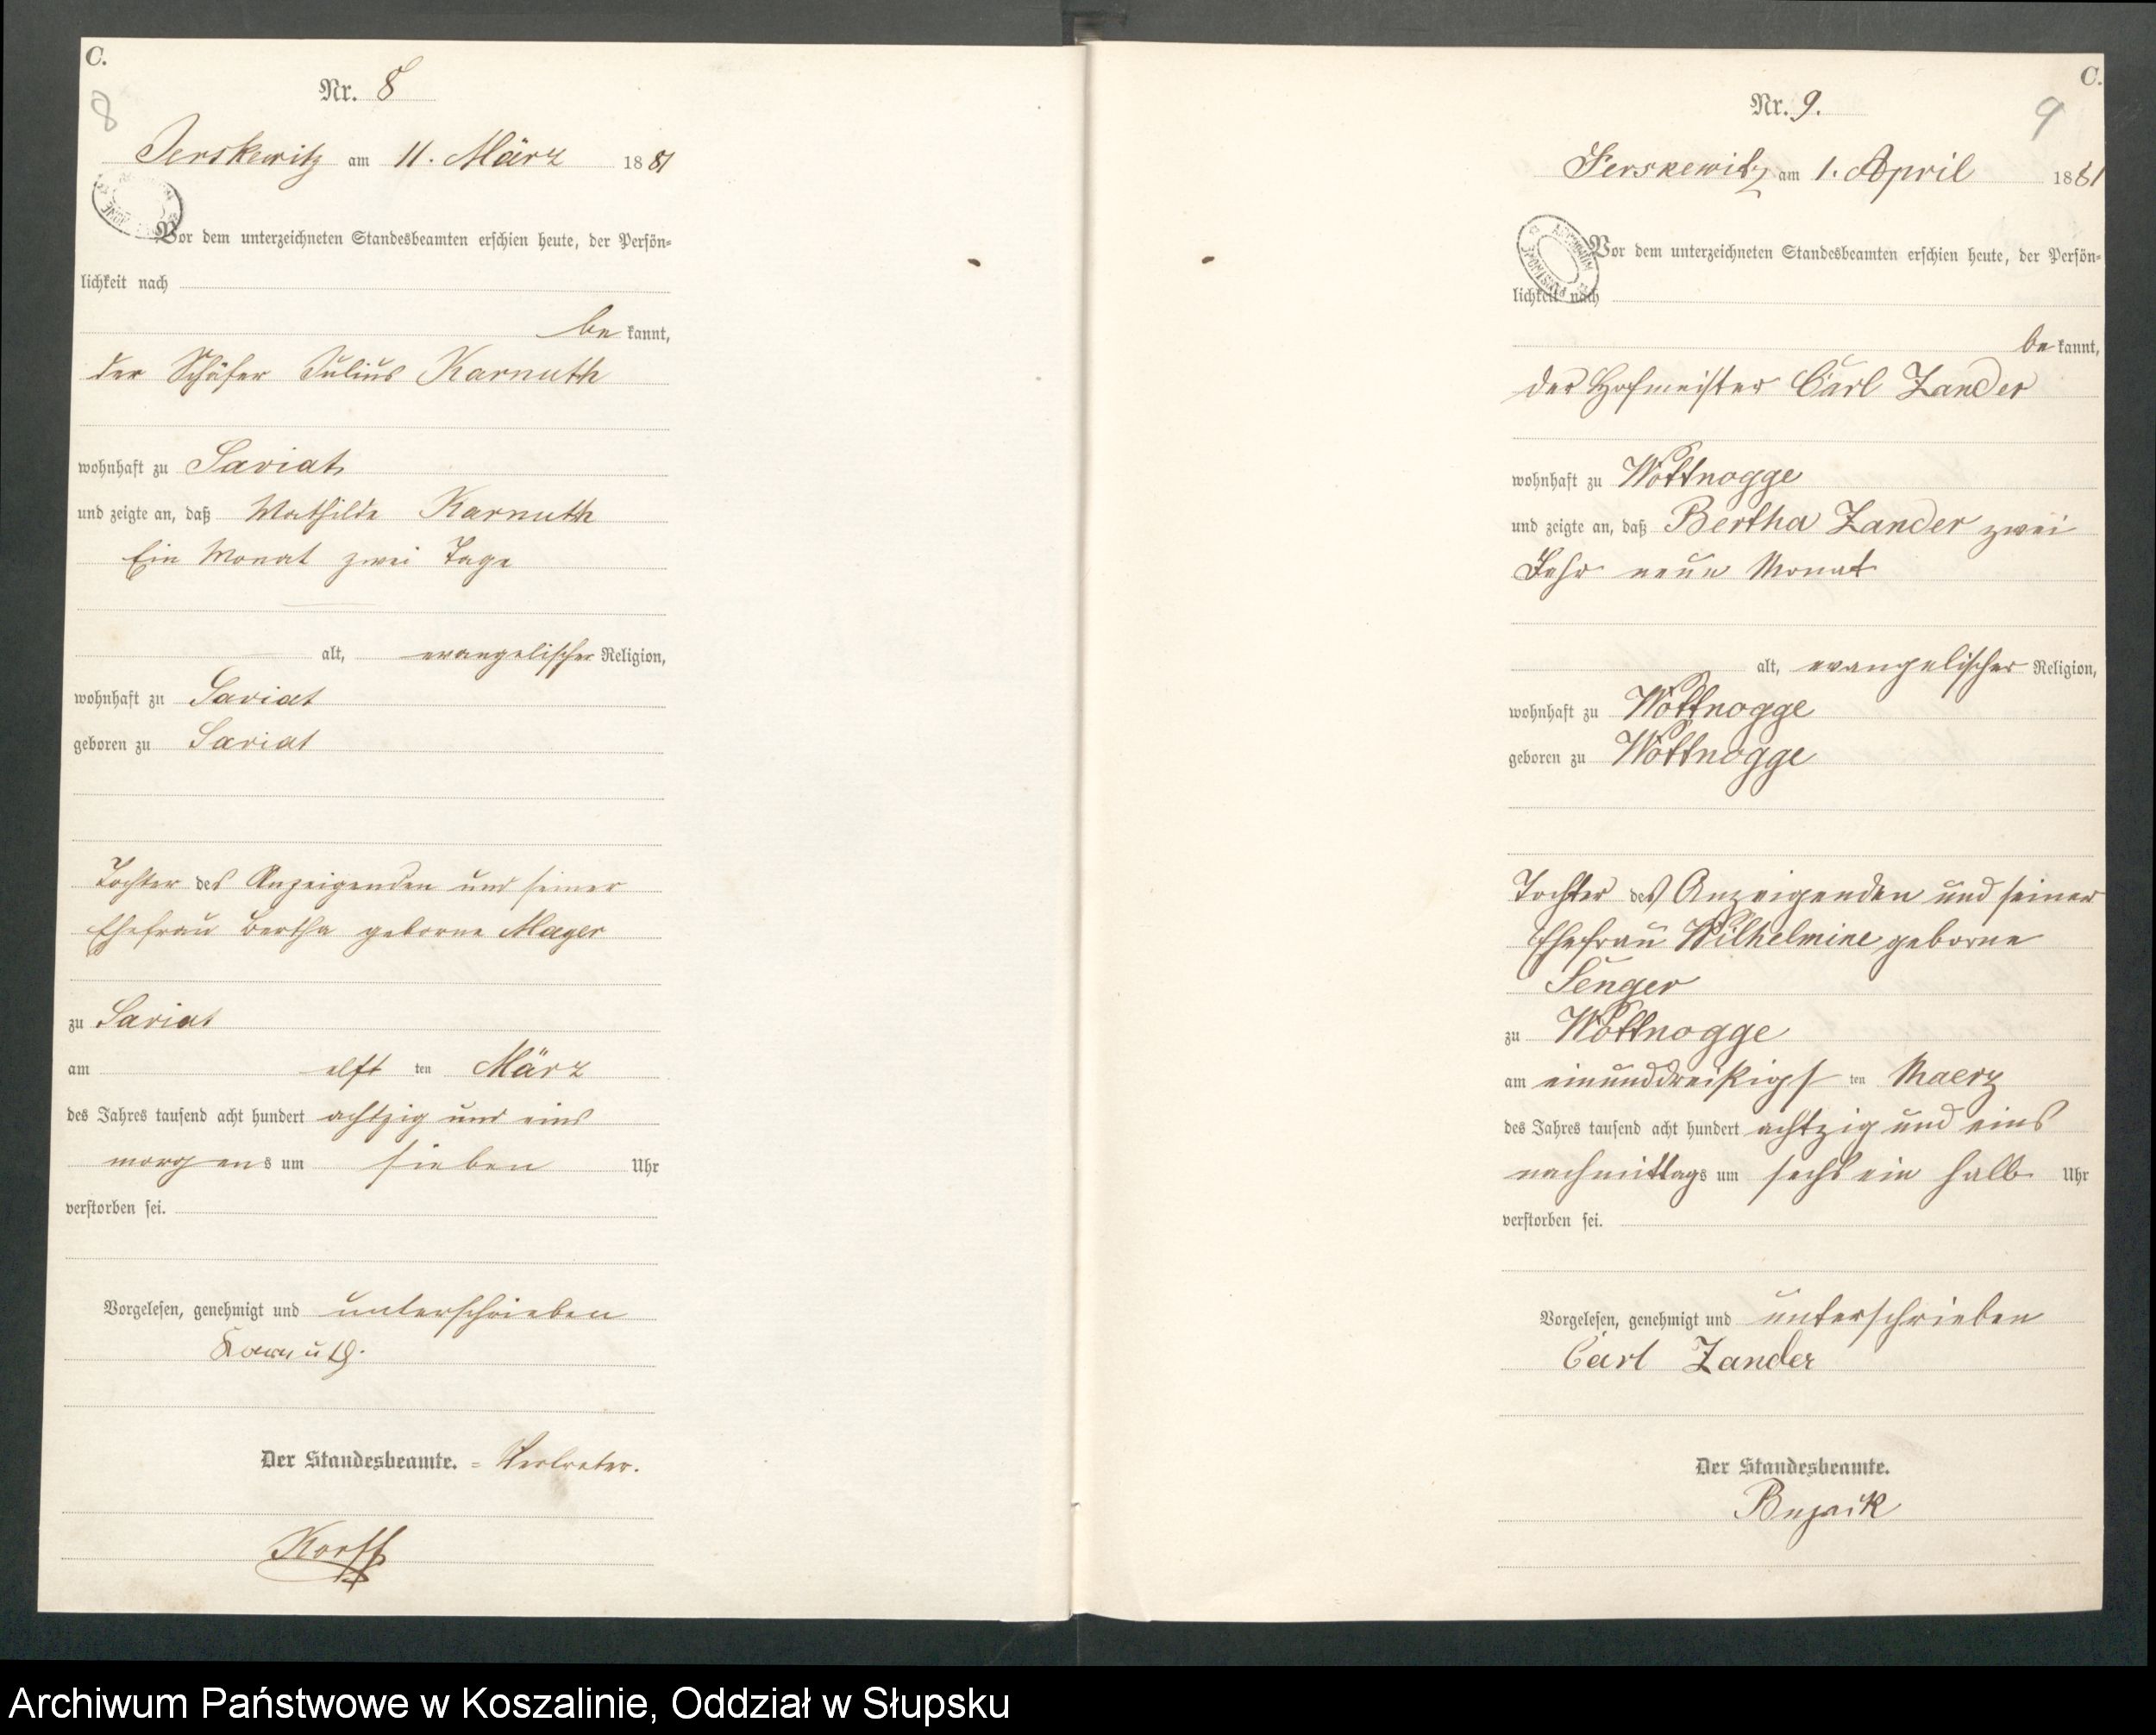 C.
Nr. 8
8
Jerskewitz am 11. März 1881
Vor dem unterzeichneten Standesbeamten erschien heute, der Persön-
lichkeit nach
be kannt,
der Schäfer Julius Karnuth
wohnhaft zu Saviat
und zeigte an, daß Mathilde Karnuth
Ein Monat zwei Tage
alt, evangelischer Religion,
wohnhaft zu Saviat
geboren zu Saviat
Tochter des Anzeigenden und seiner
Ehefrau Bertha geborne Mager
zu Saviat
am elft ten März
des Jahres tausend acht hundert achtzig und eins
morgens um sieben Uhr
verstorben sei.
Vorgelesen, genehmigt und unterschrieben
Karnuth.
Der Standesbeamte. = Vertreter.
Korff
C.
Nr. 9.
9
Jerskewitz am 1. April 1881
Vor dem unterzeichneten Standesbeamten erschien heute, der Persön-
lichkeit nach
be kannt,
der Hofmeister Carl Zander
wohnhaft zu Wottnogge
und zeigte an, daß Bertha Zander zwei
Jahr neun Monat
alt, evangelischer Religion,
wohnhaft zu Wottnogge
geboren zu Wottnogge
Tochter des Anzeigenden und seiner
Ehefrau Wilhelmine geborne
Senger
zu Wottnogge
am einunddreißigs ten Maerz
des Jahres tausend acht hundert achtzig und eins
nachmittags um sechs ein halb Uhr
verstorben sei.
Vorgelesen, genehmigt und unterschrieben
Carl Zander
Der Standesbeamte.
Archiwum Państwowe w Koszalinie, Oddział w Słupsku